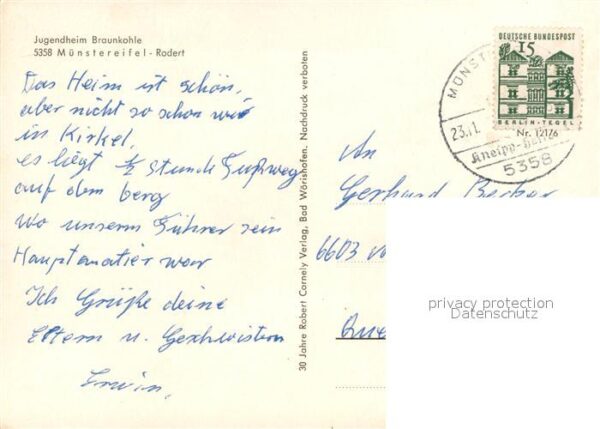 Jugendheim Braunkohle
5358 Münstereifel - Rodert
Das Heim ist schön,
aber nicht so schön wie
in Kirkel,
es liegt ½ Stunde Fußweg
auf dem berg
wo unserm Führer sein
Hauptmatier war
Ich Grüße deine
Eltern u. Geschwistern
Erwin,
30 Jahre Robert Cornely Verlag, Bad Wörishofen. Nachdruck verboten
DEUTSCHE BUNDESPOST
15
BERLIN-TEGEL
MÜNST
23.11.
Nr. 1217/6
Kneipp-Heil
5358
An
Gerhard Becker
6603
privacy protection
Datenschutz